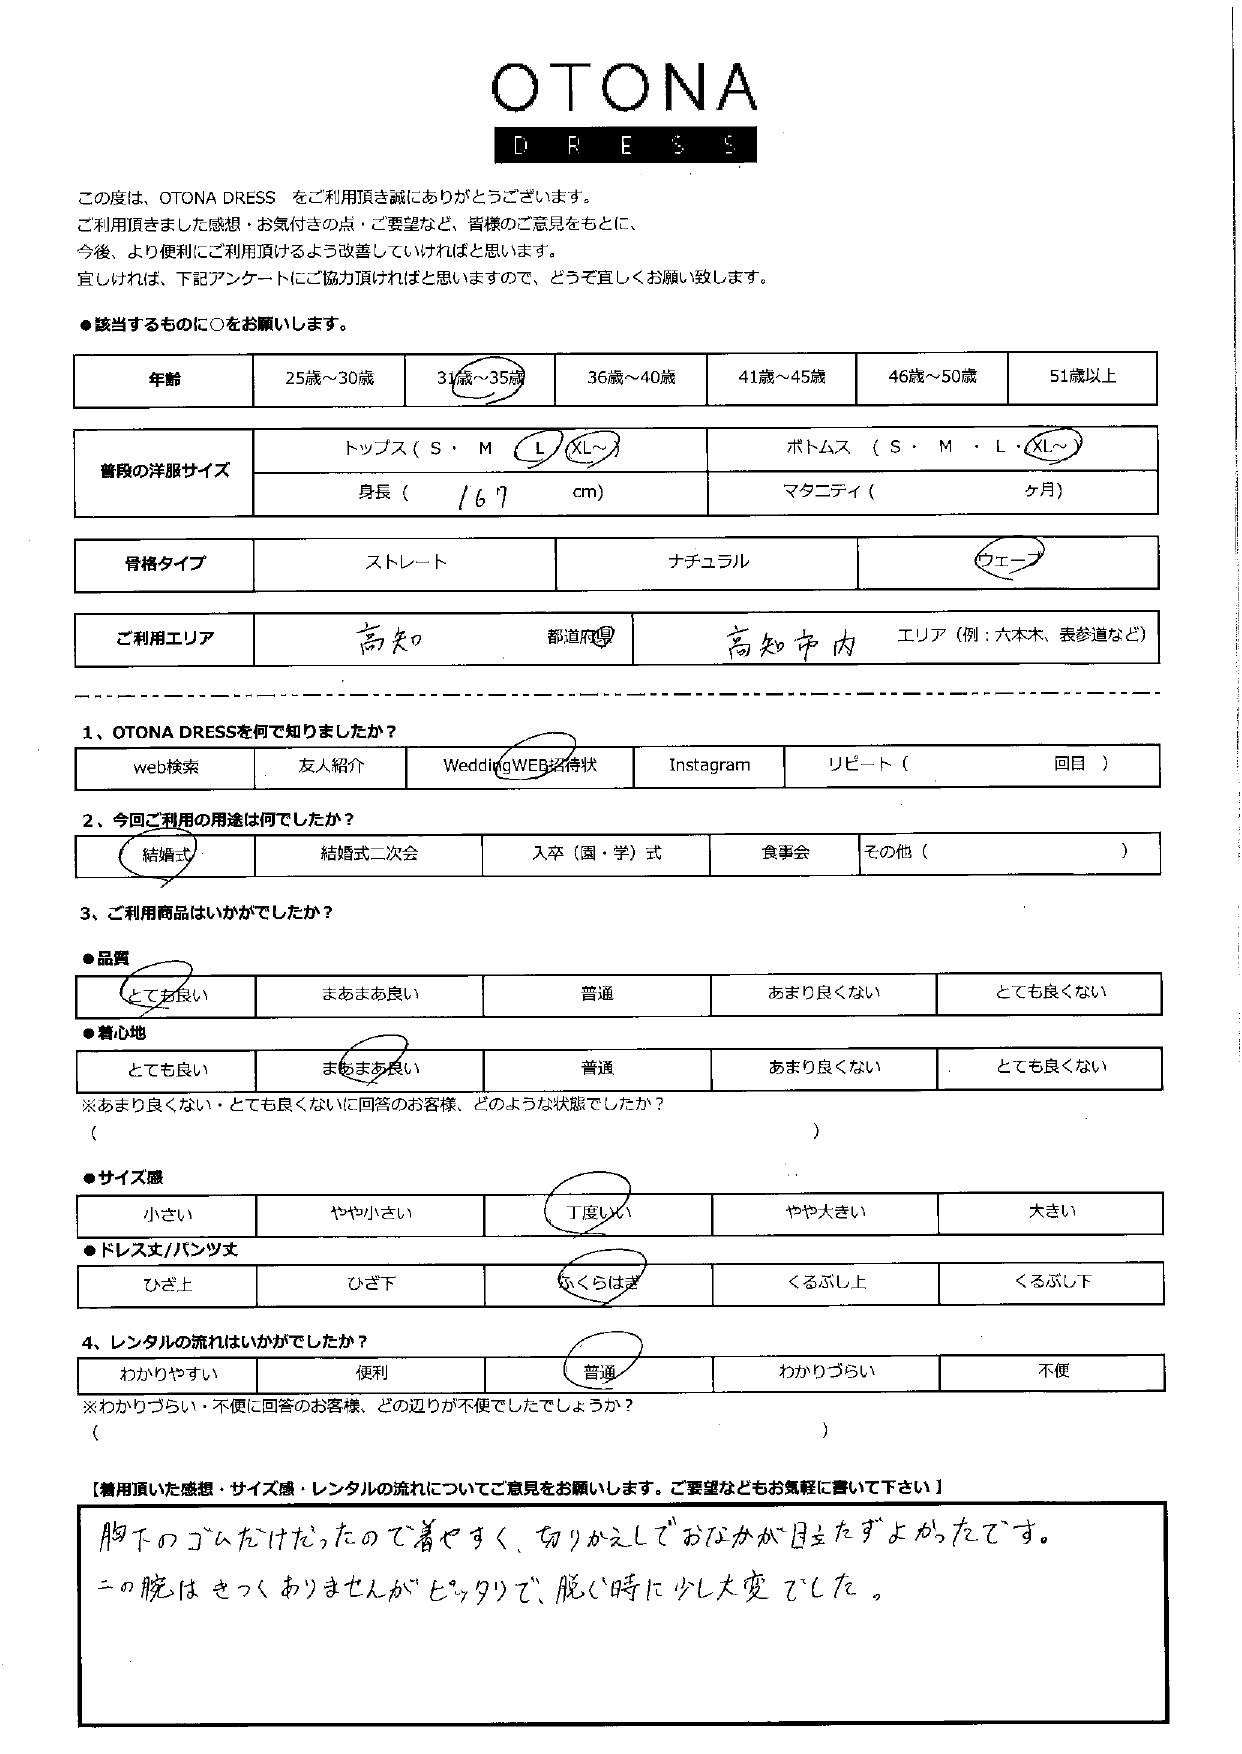 OTONA
DRESS
この度は、OTONA DRESS　をご利用頂き誠にありがとうございます。
ご利用頂きました感想・お気付きの点・ご要望など、皆様のご意見をもとに、
今後、より便利にご利用頂けるよう改善していければと思います。
宜しければ、下記アンケートにご協力頂ければと思いますので、どうぞ宜しくお願い致します。
●該当するものに○をお願いします。
年齢 25歳～30歳 31歳～35歳 36歳～40歳 41歳～45歳 46歳～50歳 51歳以上
普段の洋服サイズ トップス ( S ・ M L XL～ ) ボトムス ( S ・ M ・ L ・ XL～ )
身長 ( 167 cm) マタニティ ( ヶ月)
骨格タイプ ストレート ナチュラル ウェーブ
ご利用エリア 高知 都道府県 高知市内 エリア（例：六本木、表参道など）
1、OTONA DRESSを何で知りましたか？
web検索 友人紹介 WeddingWEB招待状 Instagram リピート（ 回目 ）
2、今回ご利用の用途は何でしたか？
結婚式 結婚式二次会 入卒（園・学）式 食事会 その他（ ）
3、ご利用商品はいかがでしたか？
●品質
とても良い まあまあ良い 普通 あまり良くない とても良くない
●着心地
とても良い まあまあ良い 普通 あまり良くない とても良くない
※あまり良くない・とても良くないに回答のお客様、どのような状態でしたか？
( )
●サイズ感
小さい やや小さい 丁度いい やや大きい 大きい
●ドレス丈/パンツ丈
ひざ上 ひざ下 ふくらはぎ くるぶし上 くるぶし下
4、レンタルの流れはいかがでしたか？
わかりやすい 便利 普通 わかりづらい 不便
※わかりづらい・不便に回答のお客様、どの辺りが不便でしたでしょうか？
( )
【着用頂いた感想・サイズ感・レンタルの流れについてご意見をお願いします。ご要望などもお気軽に書いて下さい】
胸下のゴムだけだったので着やすく、切りかえしでおなかが目立たずよかったです。
二の腕はきつくありませんがピッタリで、脱ぐ時に少し大変でした。